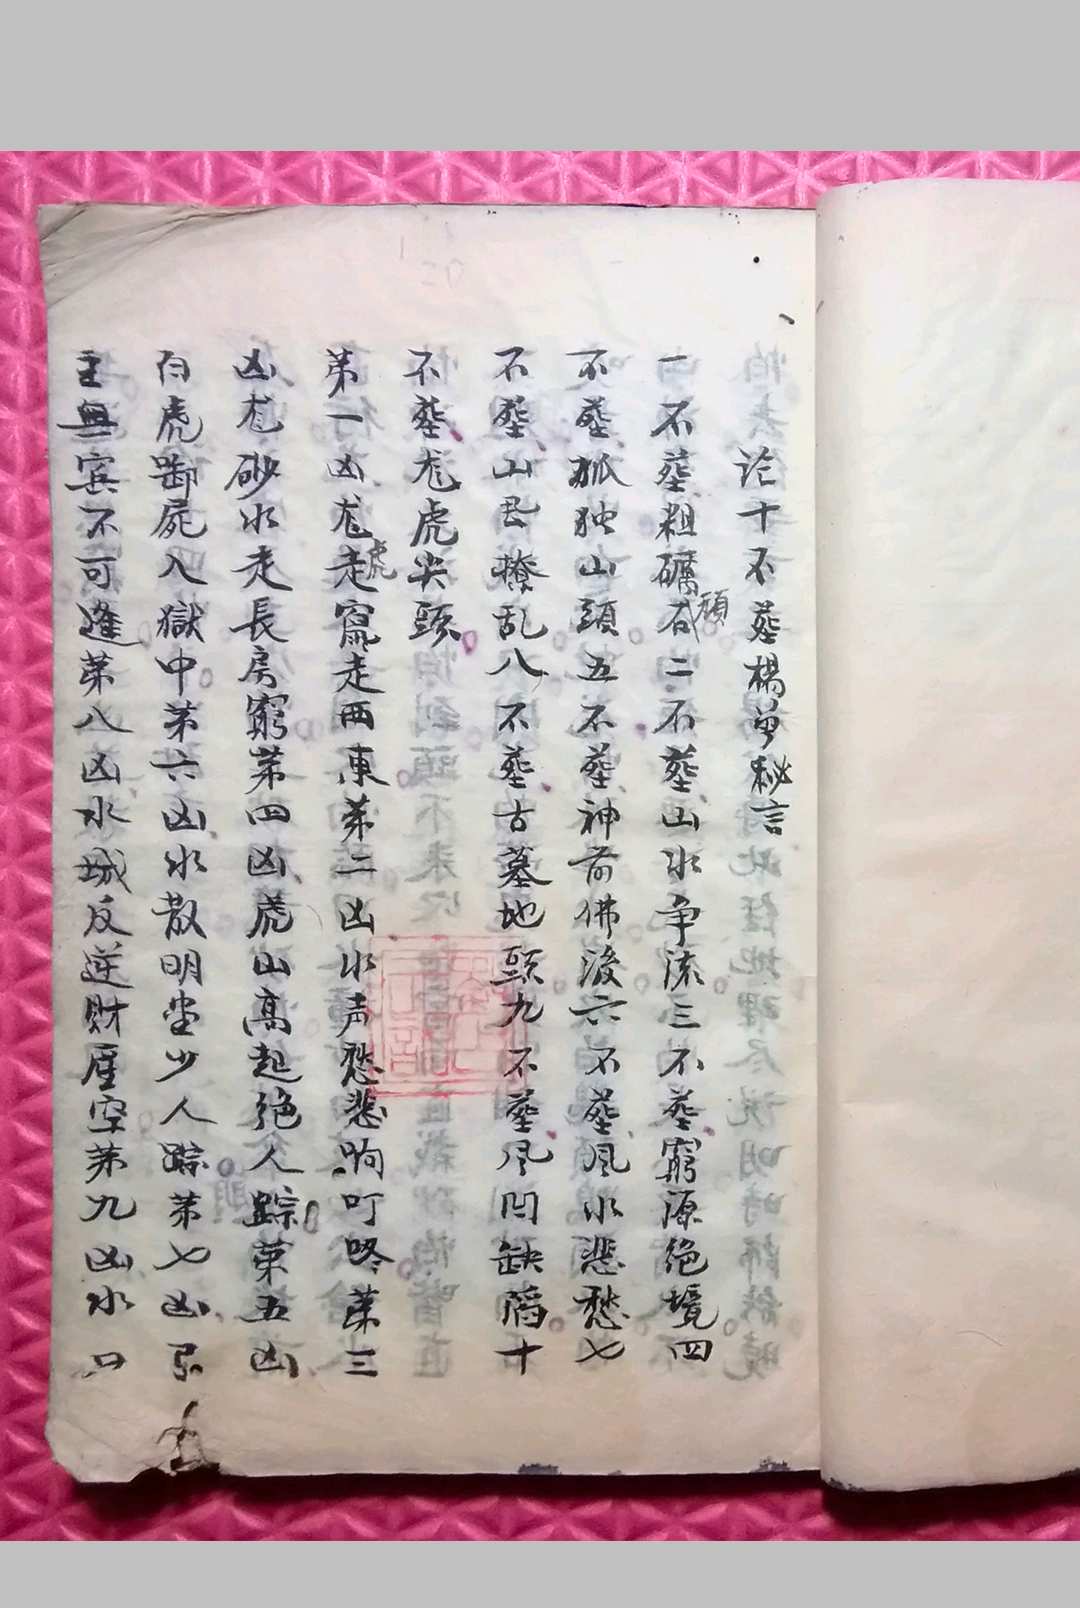 论十不塟楊曽秘言
一不塟粗礪石頑二不塟山水争流三不塟窮源绝境四
不塟孤独山頭五不塟神前佛後六不塟風水悲愁七
不塟山岗撩乱八不塟古墓地頭九不塟风凹缺陷十
不塟龙虎尖頭
第一凶龙虎走竄走西東第二凶水声愁悲响叮咚第三
凶龙砂水走長房窮第四凶虎山高起绝人踪第五凶
白虎啣屍入獄中第六凶水散明堂少人踪第七凶
主無賓不可逢第八凶水城反逆財產空第九凶水口